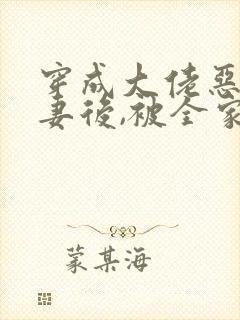 穿成大佬惡
妻後,被全家
蒙某海